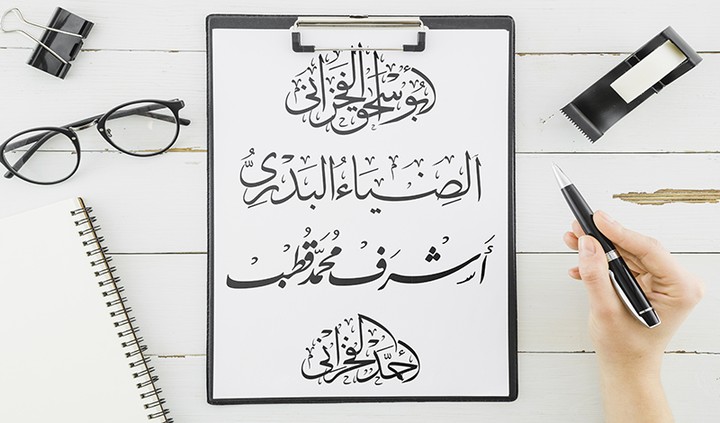 أبو إسحٰق الفخرانى
الضِيَاءُ البَدْرِىُّ
أشرف مُحمَّد قُطب
أحمَد الفخرانى